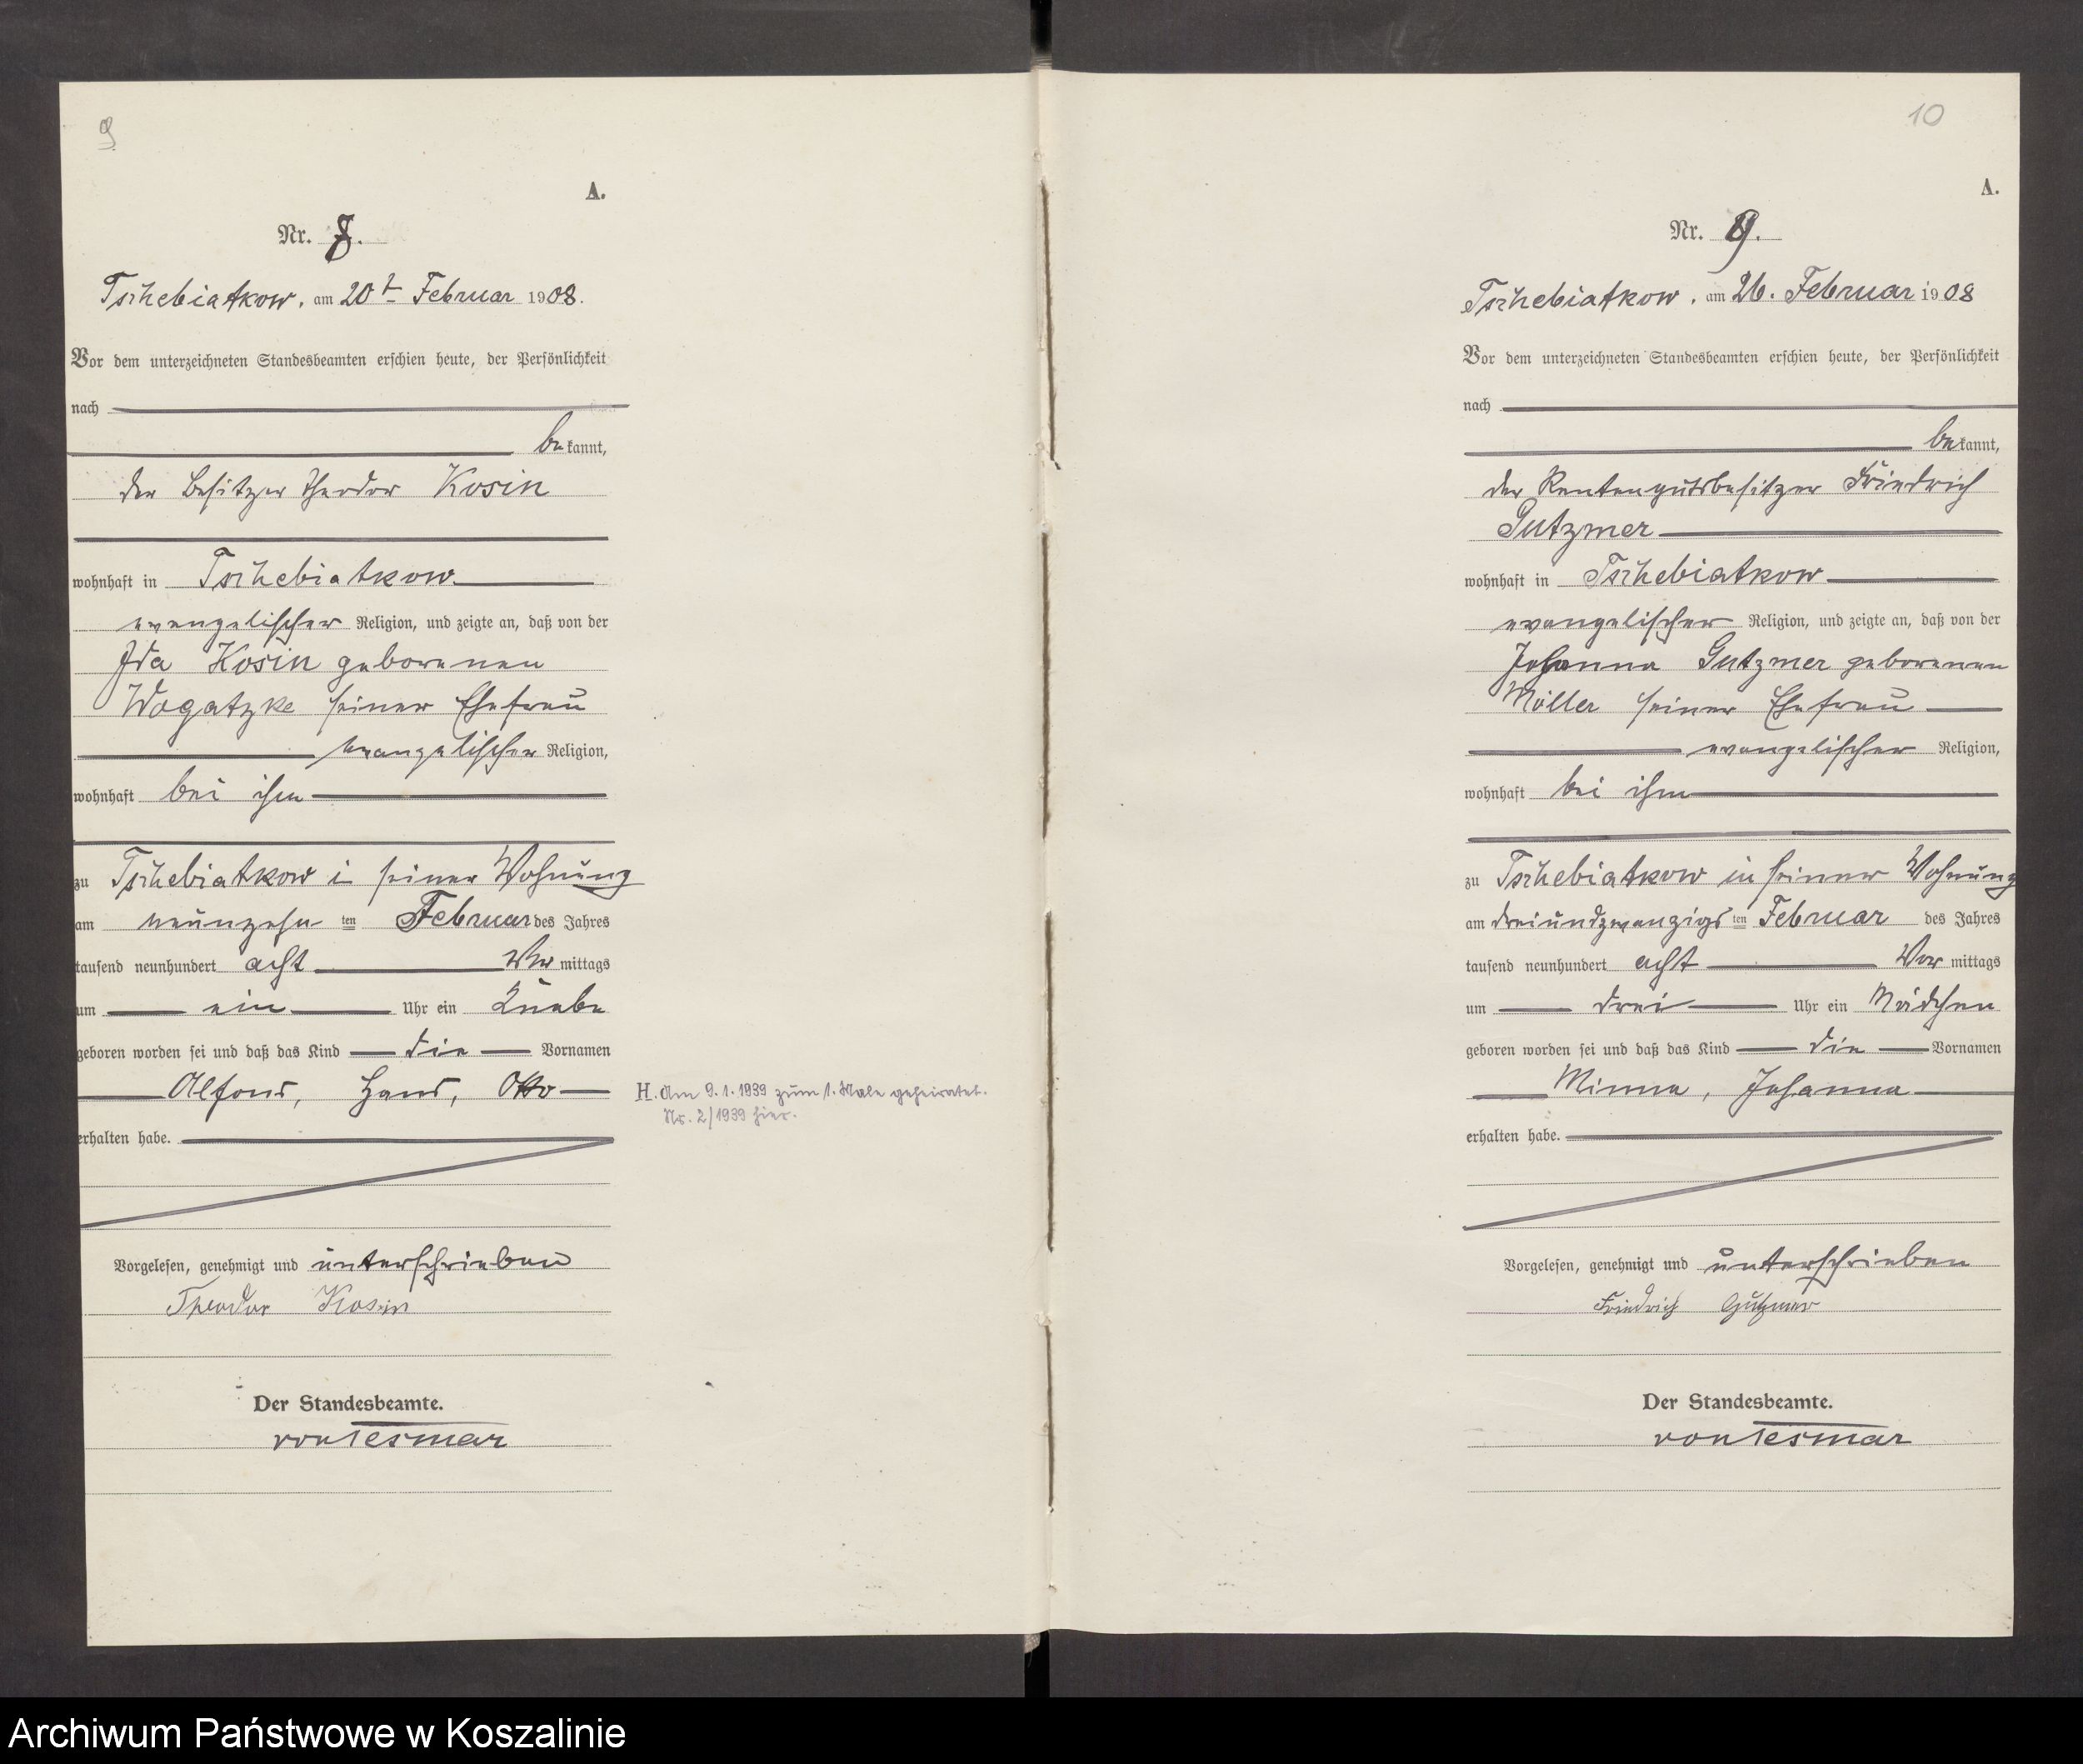 9
A.
Nr. 8.
Tschebiatkow, am 20t Februar 1908.
Vor dem unterzeichneten Standesbeamten erschien heute, der Persönlichkeit
nach
bekannt,
der Besitzer Theodor Kosin
wohnhaft in Tschebiatkow
evangelischer Religion, und zeigte an, daß von der
Ida Kosin geborenen
Wogatzke seiner Ehefrau
evangelischer Religion,
wohnhaft bei ihm
zu Tschebiatkow in seiner Wohnung
am neunzehn ten Februar des Jahres
tausend neunhundert acht Vormittags
um ein Uhr ein Knabe
geboren worden sei und daß das Kind die Vornamen
Alfons, Hans, Otto
H. Am 9.1.1939 zum 1. Male geheiratet.
Nr. 2/1939 hier.
erhalten habe.
Vorgelesen, genehmigt und unterschrieben
Theodor Kosin
Der Standesbeamte.
von Tesmar
10
A.
Nr. 9.
Tschebiatkow, am 26. Februar 1908
Vor dem unterzeichneten Standesbeamten erschien heute, der Persönlichkeit
nach
bekannt,
der Rentengutsbesitzer Friedrich
Gutzmer
wohnhaft in Tschebiatkow
evangelischer Religion, und zeigte an, daß von der
Johanna Gutzmer geborenen
Möller seiner Ehefrau
evangelischer Religion,
wohnhaft bei ihm
zu Tschebiatkow in seiner Wohnung
am dreiundzwanzigs ten Februar des Jahres
tausend neunhundert acht Vormittags
um drei Uhr ein Mädchen
geboren worden sei und daß das Kind die Vornamen
Minna, Johanna
erhalten habe.
Vorgelesen, genehmigt und unterschrieben
Friedrich Gutzmer
Der Standesbeamte.
von Tesmar
Archiwum Państwowe w Koszalinie